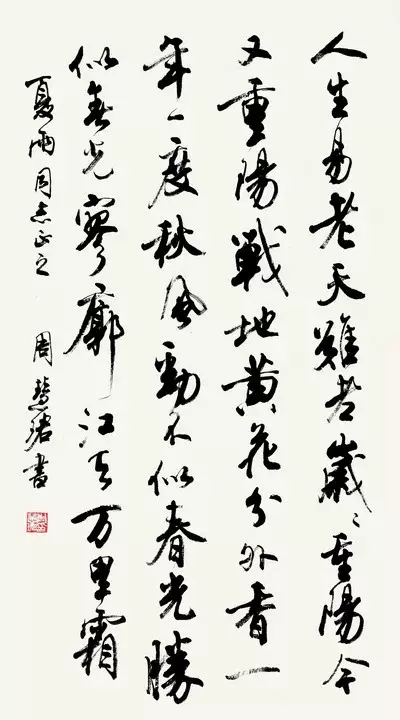 人生易老天難老歲々重陽今
又重陽戰地黄花分外香一
年一度秋風勁不似春光勝
似春光寥廓江天万里霜
夏雨同志正之 周慧珺書